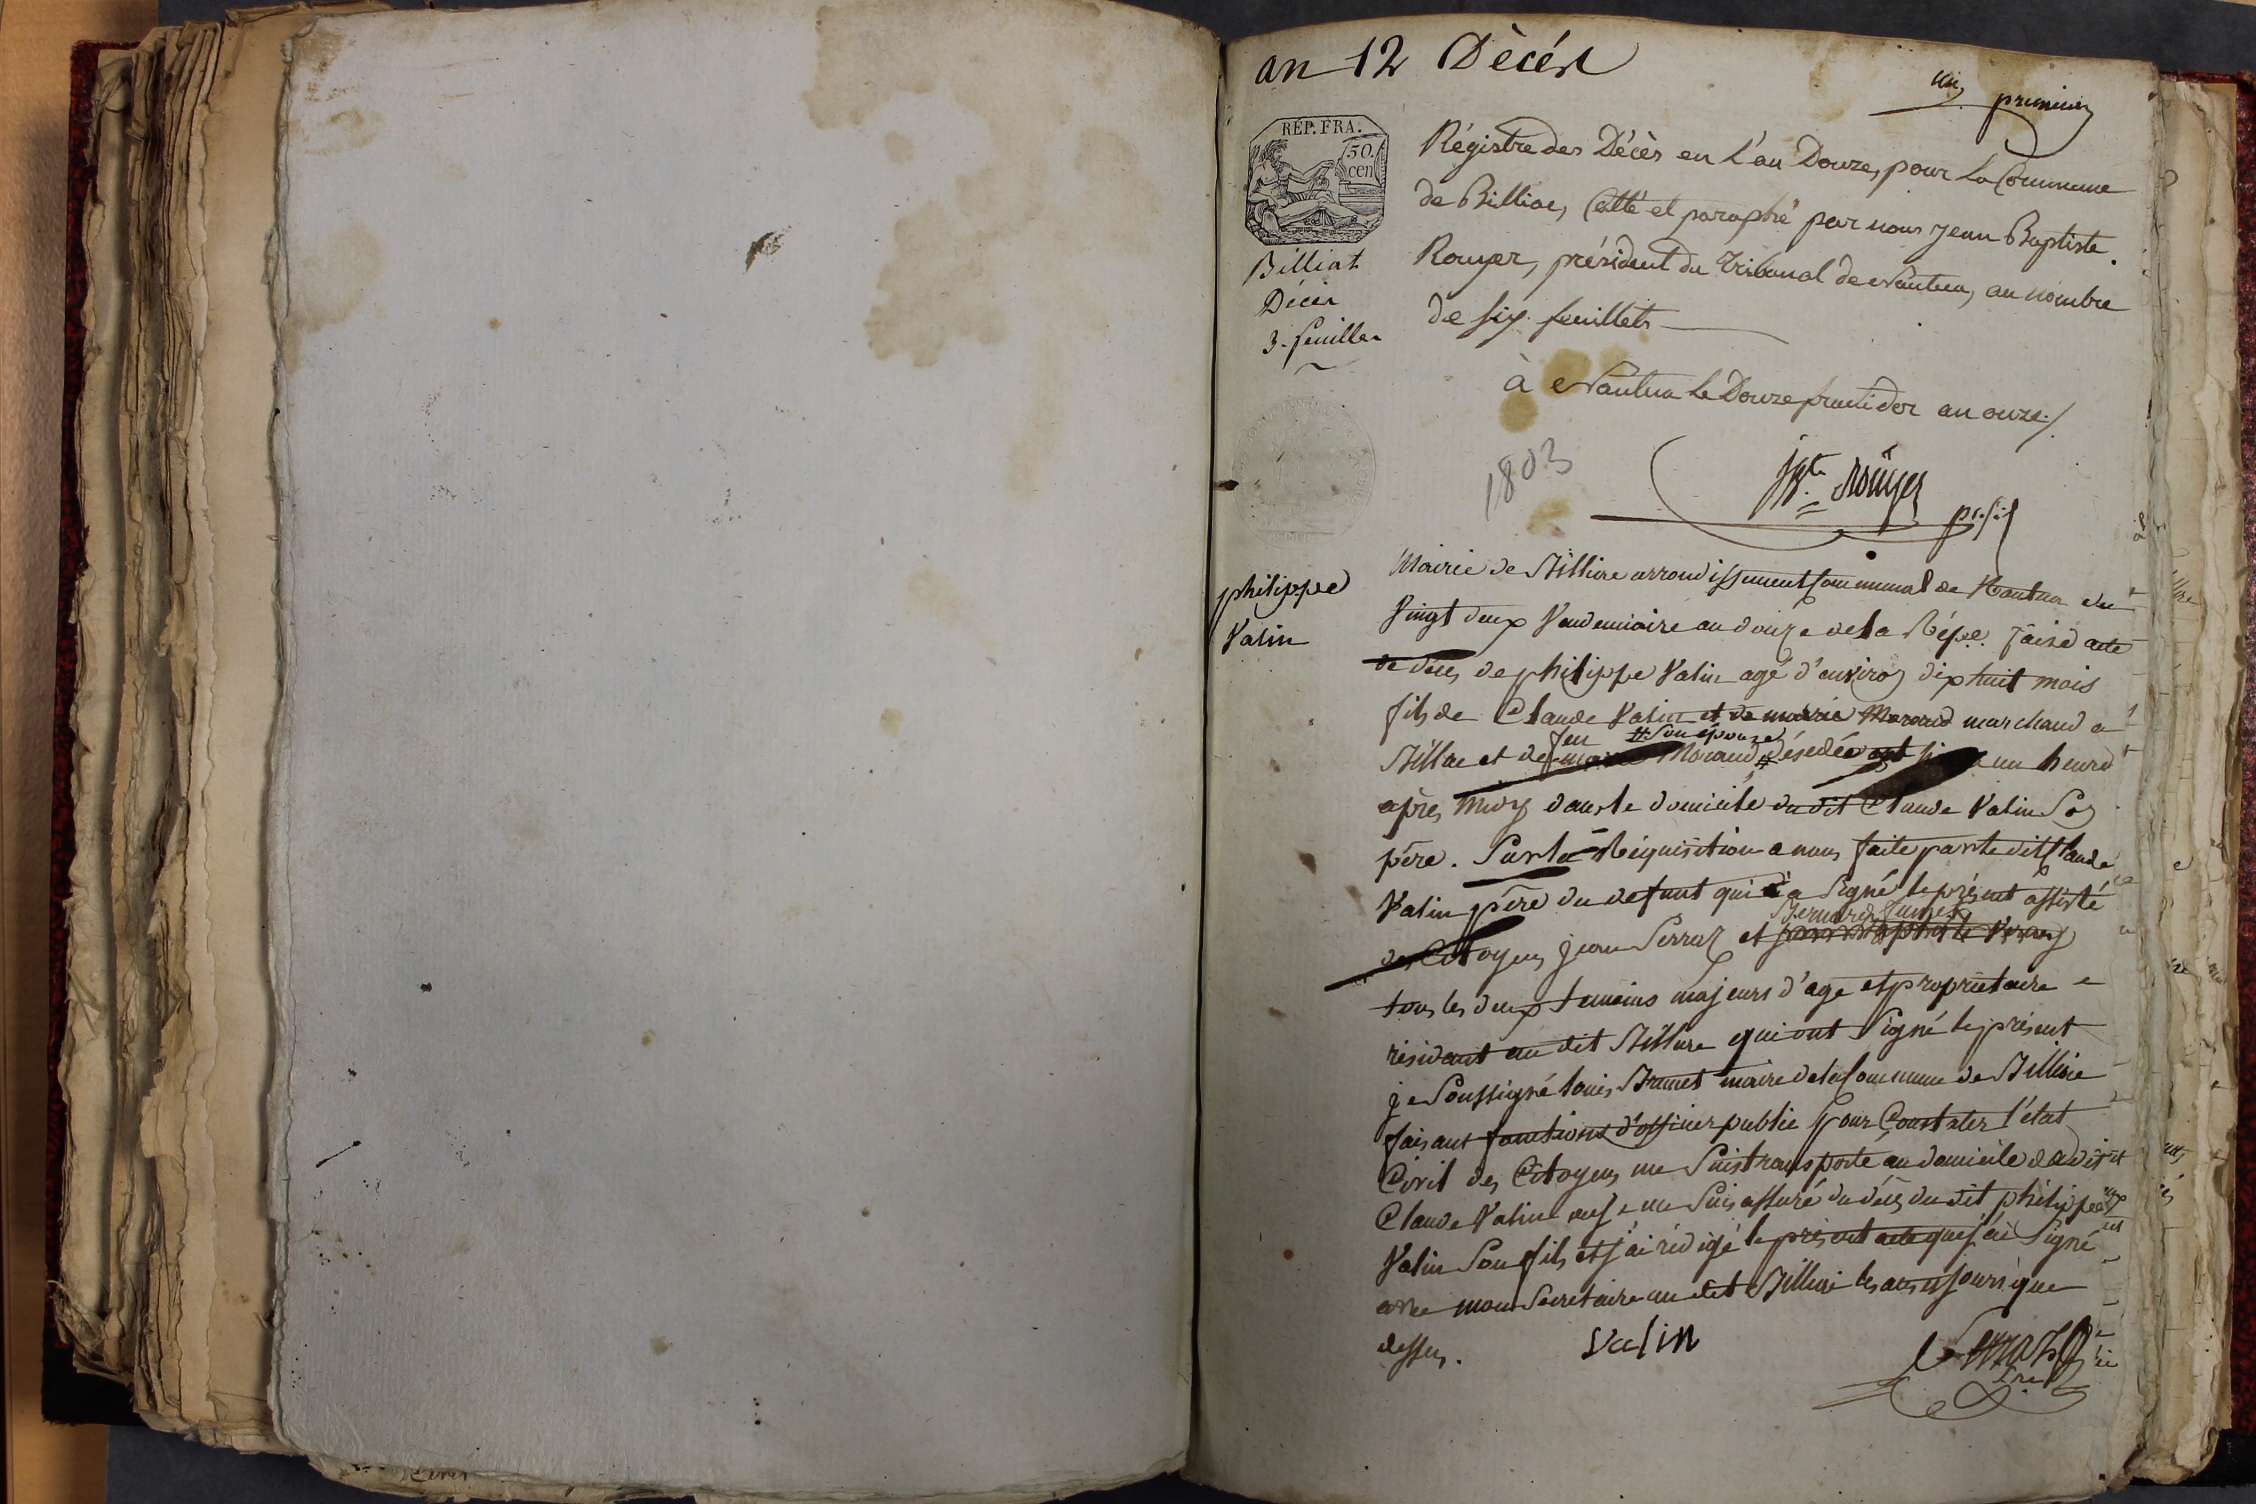 an 12 Décés
premier
RÉP. FRA.
50.
cen
Régistre des Décès en l'an Douze, pour la Commune
de Billiac, Cotté et paraphé par nous jean Baptiste
Rouyer, président du Tribunal de Nantua, au nombre
de six feuillets
Billiat
Décès
3 feuilles
à Nantua le Douze fructidor an onze./.
1803
Jn Bte Roüyer
présid
philippe
Valin
Mairie de Billiac arrondissement Communal de Nantua du
Vingt deux Vendemiaire an douze de la Répe. acte
de déces de philippe Valin agé d'environ dix huit mois
fils de Claude Valin et de marie Moraud marchand a
feu # Son épouze
Billac et de Moraud # un heure
après midy dans le domicile du dit Claude Valin Son
père. Sur la Réquisition a nous faite par le dit Claude
Valin père du defunt qui a Signé le présent assisté
Bernard
des Citoyens jean Serraz et
tous les deux temoins majeurs d'age et propriétaire
résidant au dit Billiac qui ont Signé le présent
je Soussigné louis Brunet maire de la Commune de Billiac
faisant fonctions d'officier public pour Constater l'état
Civil des Citoyens me Suis transporté au domicile du dit
Claude Valin me Suis assuré du déces du dit philippe
Valin Son fils et j'ai rédigé le présent acte que j'ai Signé
avec mon Secretaire au dit Billiac les an et jour que
dessus.
Valin